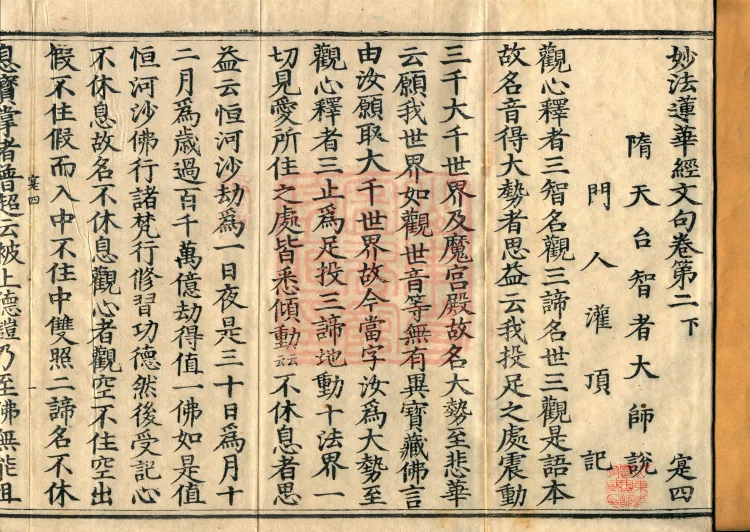 妙法蓮華經文句卷第二下 寔四
隋天台智者大師說
門人灌頂記
觀心釋者三智名觀三諦名世三觀是語本
故名音得大勢者思益云我投足之處震動
三千大千世界及魔宮殿故名大勢至悲華
云願我世界如觀世音等無有異寶藏佛言
由汝願取大千世界故今當字汝為大勢至
觀心釋者三止為足投三諦地動十法界一
切見愛所住之處皆悉傾動云云不休息者思
益云恒河沙劫為一日夜是三十日為月十
二月為歲過百千萬億劫得值一佛如是值
恒河沙佛行諸梵行修習功德然後受記心
不休息故名不休息觀心者觀空不住空出
假不住假而入中不住中雙照二諦名不休
寔四
息寶掌者普超云被上德鎧乃至佛無能沮